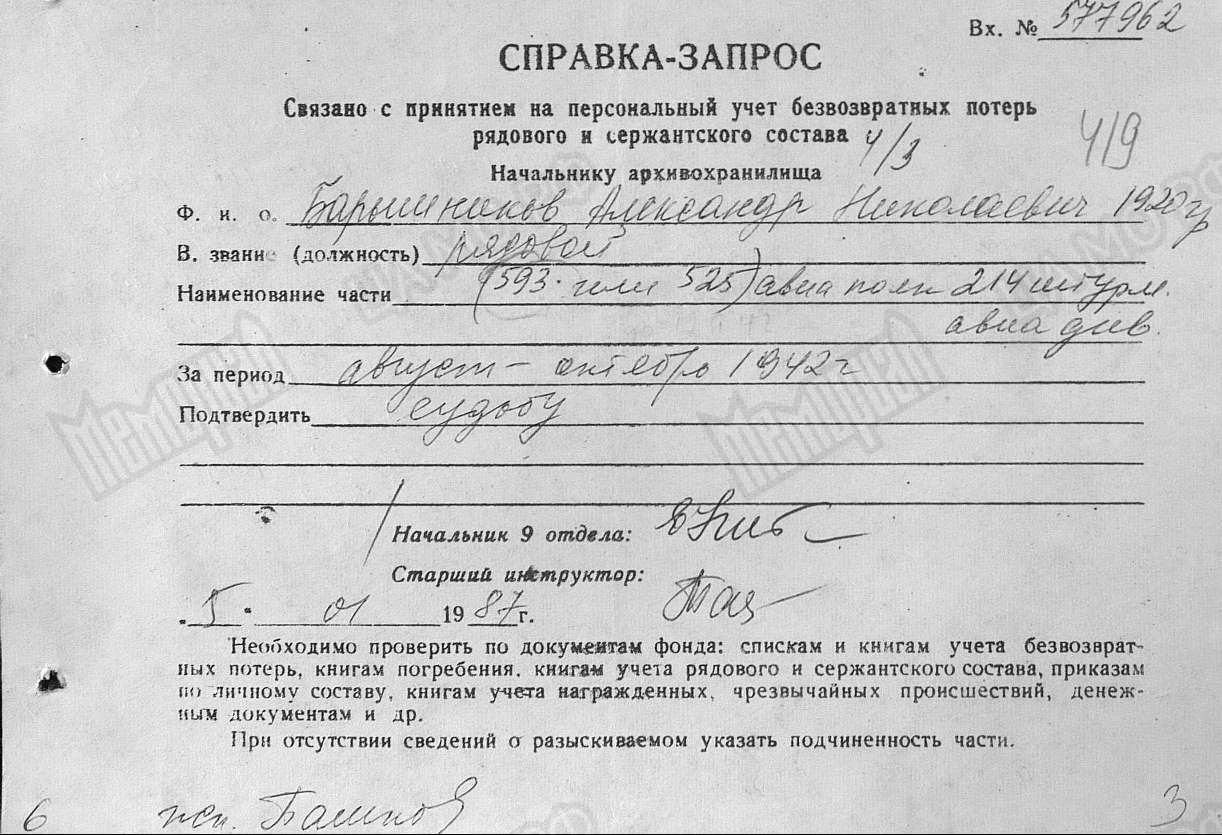 Вх. № 577962
СПРАВКА-ЗАПРОС
Связано с принятием на персональный учет безвозвратных потерь
рядового и сержантского состава 4/3
419
Начальнику архивохранилища
Ф. и. о. Барышников Александр Николаевич 1920гр
В. звание (должность) рядовой
Наименование части (593 или 525) авиа полк 214 штурм.
авиа див.
За период август - октябрь 1942г
Подтвердить судьбу
Начальник 9 отдела:
Старший инструктор:
"5" 01 1987г.
Необходимо проверить по документам фонда: спискам и книгам учета безвозврат-
ных потерь, книгам погребения, книгам учета рядового и сержантского состава, приказам
по личному составу, книгам учета награжденных, чрезвычайных происшествий, денеж-
ным документам и др.
При отсутствии сведений о разыскиваемом указать подчиненность части.
6 исп. 3
Мемориал
Мемориал